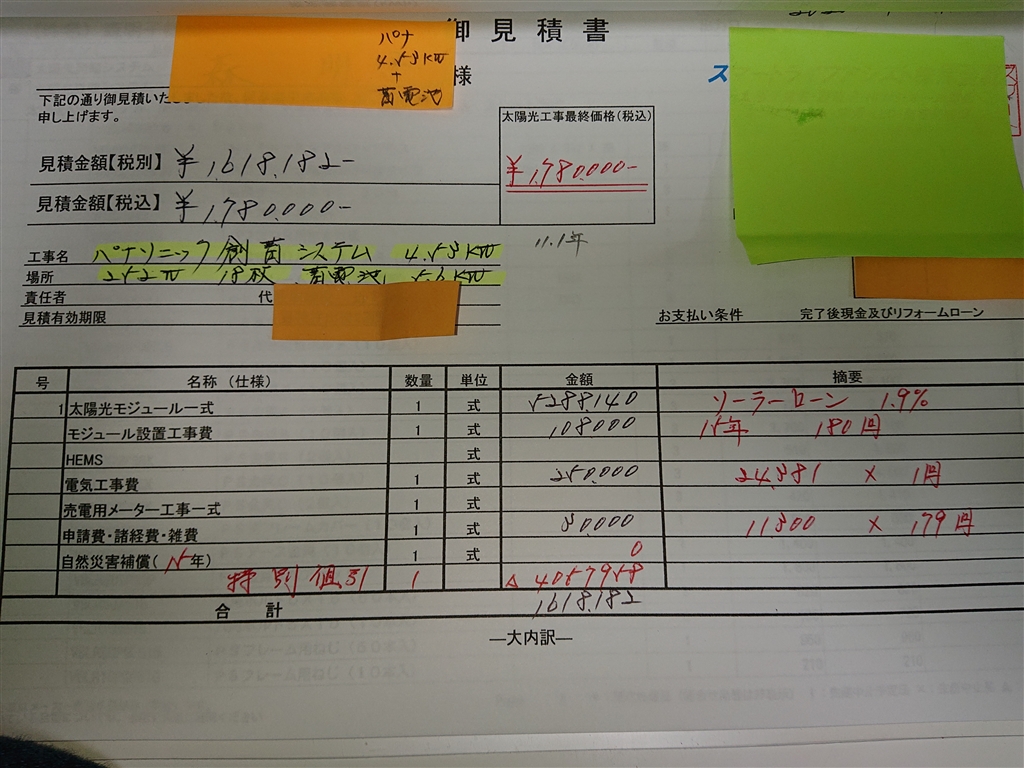 御見積書
パナ
4.53KW
+
蓄電池
様
ス
下記の通り御見積いた
申し上げます。
太陽光工事最終価格(税込)
¥1,780,000-
見積金額【税別】 ¥1,618,182-
見積金額【税込】 ¥1,780,000-
11.1年
工事名 パナソニック創蓄システム 4.53KW
場所 252W 18枚 蓄電池 5.6KW
責任者 代
見積有効期限
お支払い条件 完了後現金及びリフォームローン
号 名称(仕様) 数量 単位 金額 摘要
1 太陽光モジュール一式 1 式 5288140 ソーラーローン 1.9%
モジュール設置工事費 1 式 108000 15年 180回
HEMS 式
電気工事費 1 式 250,000 24,381 × 1回
売電用メーター工事一式 1 式
申請費・諸経費・雑費 1 式 30000 11300 × 179回
自然災害補償(15年) 1 式 0
特別値引 1 △4057958
合計 1618,182
―大内訳―